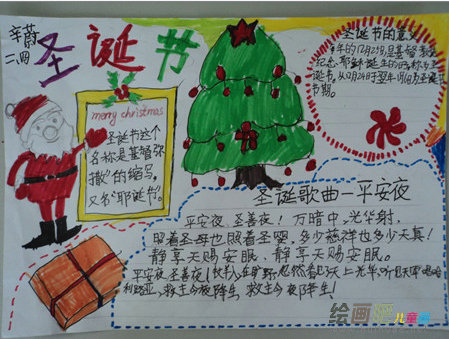 辛蔚
二、四
圣诞节
merry christmas
圣诞节这个
名称是基督弥
撒”的缩写，
又名“耶诞节”。
圣诞节的意义
年的12月25日,是基督教徒
纪念耶稣诞生的日,称为圣
诞节，从12月24日于翌年1月6日为圣诞节
节期。
圣诞歌曲—平安夜
平安夜、圣善夜！万暗中，光华射，
照着圣母也照着圣婴，多少慈祥也多少天真！
静享天赐安眠，静享天赐安眠。
平安夜,圣善夜！牧羊人在旷野,忽然看见天上光华,听见天军唱哈
利路亚,救主今夜降生,救主今夜降生！
绘画吧儿童画